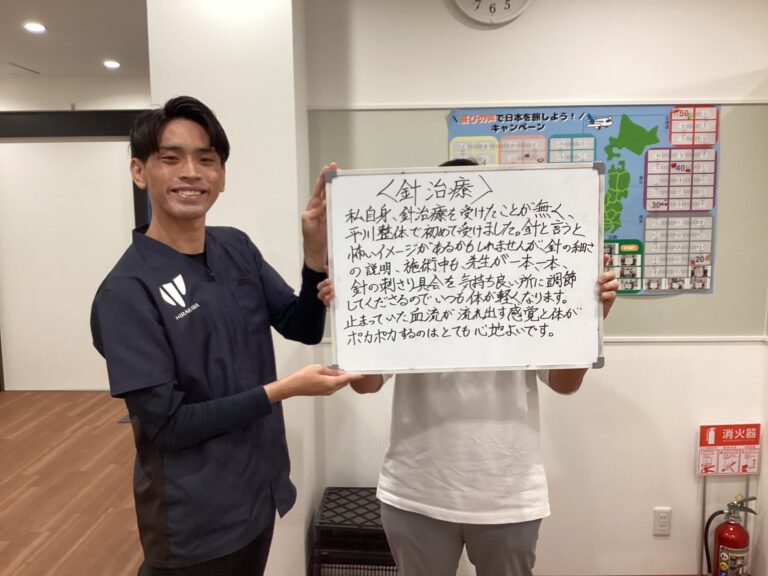 7 6 5
\喜びの声で日本を旅しよう!/
キャンペーン
〈針治療〉
私自身、針治療を受けたことが無く、
平川整体で初めて受けました。針と言うと
怖いイメージがあるかもしれませんが、針の細さ
の説明、施術中も、先生が一本、一本、
針の刺さり具合を気持ち良い所に調節
してくださるのでいつも体が軽くなります。
止まっていた血流が流れ出す感覚と体が
ポカポカするのはとても心地よいです。
HIRAKAWA
50
40
30
20
消火器